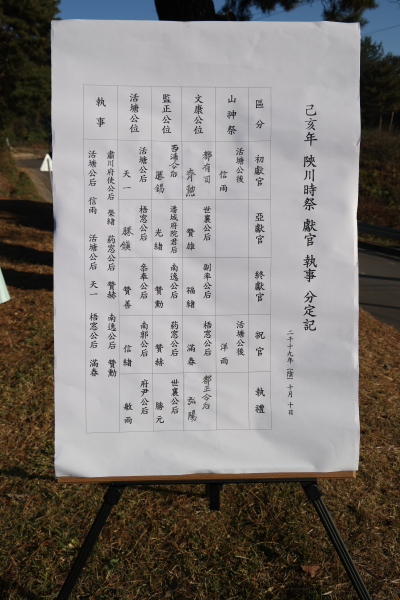 己亥年 陜川時祭 獻官 執事 分定記
二千十九年 (陰) 十月 十日
區分 初獻官 亞獻官 終獻官 祝官 執禮
山神祭 活塘公後 信雨 活塘公後 洋雨
文康公位 都有司 世襄公后 贊雄 副率公后 福緒 梧窓公后 滿春 都正公后 弘陽
監正公位 光緒 南逸公后 贊勳 葯窓公后 贊赫 世襄公后 勝元
活塘公位 活塘公后 天一 梧窓公后 參奉公后 贊善 南郭公后 信緒 府尹公后 敏雨
執事 肅川府使公后 榮緒 葯窓公后 贊赫 南逸公后 贊勳
活塘公后 信雨 活塘公后 天一 梧窓公后 滿春